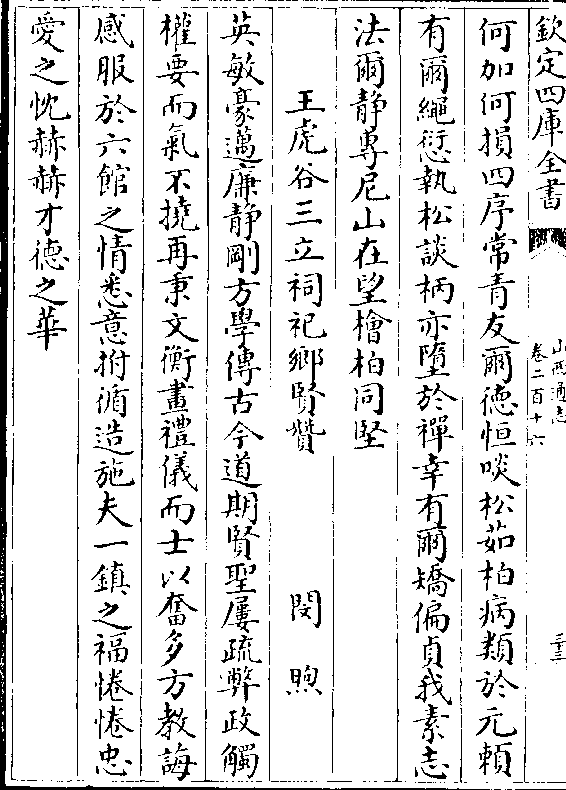 欽定四庫全書
山西通志
卷二百十六
三三
何加何損四序常青友爾德恒啖松茹柏病類於元賴
有爾繩愆執松談柄亦墮於禪幸有爾矯偏貞我素志
法爾静專尼山在望檜柏同堅
王虎谷三立祠祀鄉賢贊 閔煦
英敏豪邁廉静剛方學傳古今道期賢聖屢疏弊政觸
權要而氣不撓再秉文衡畫禮儀而士以奮多方教誨
感服於六館之情悉意拊循造施夫一鎮之福惓惓忠
愛之忱赫赫才德之華